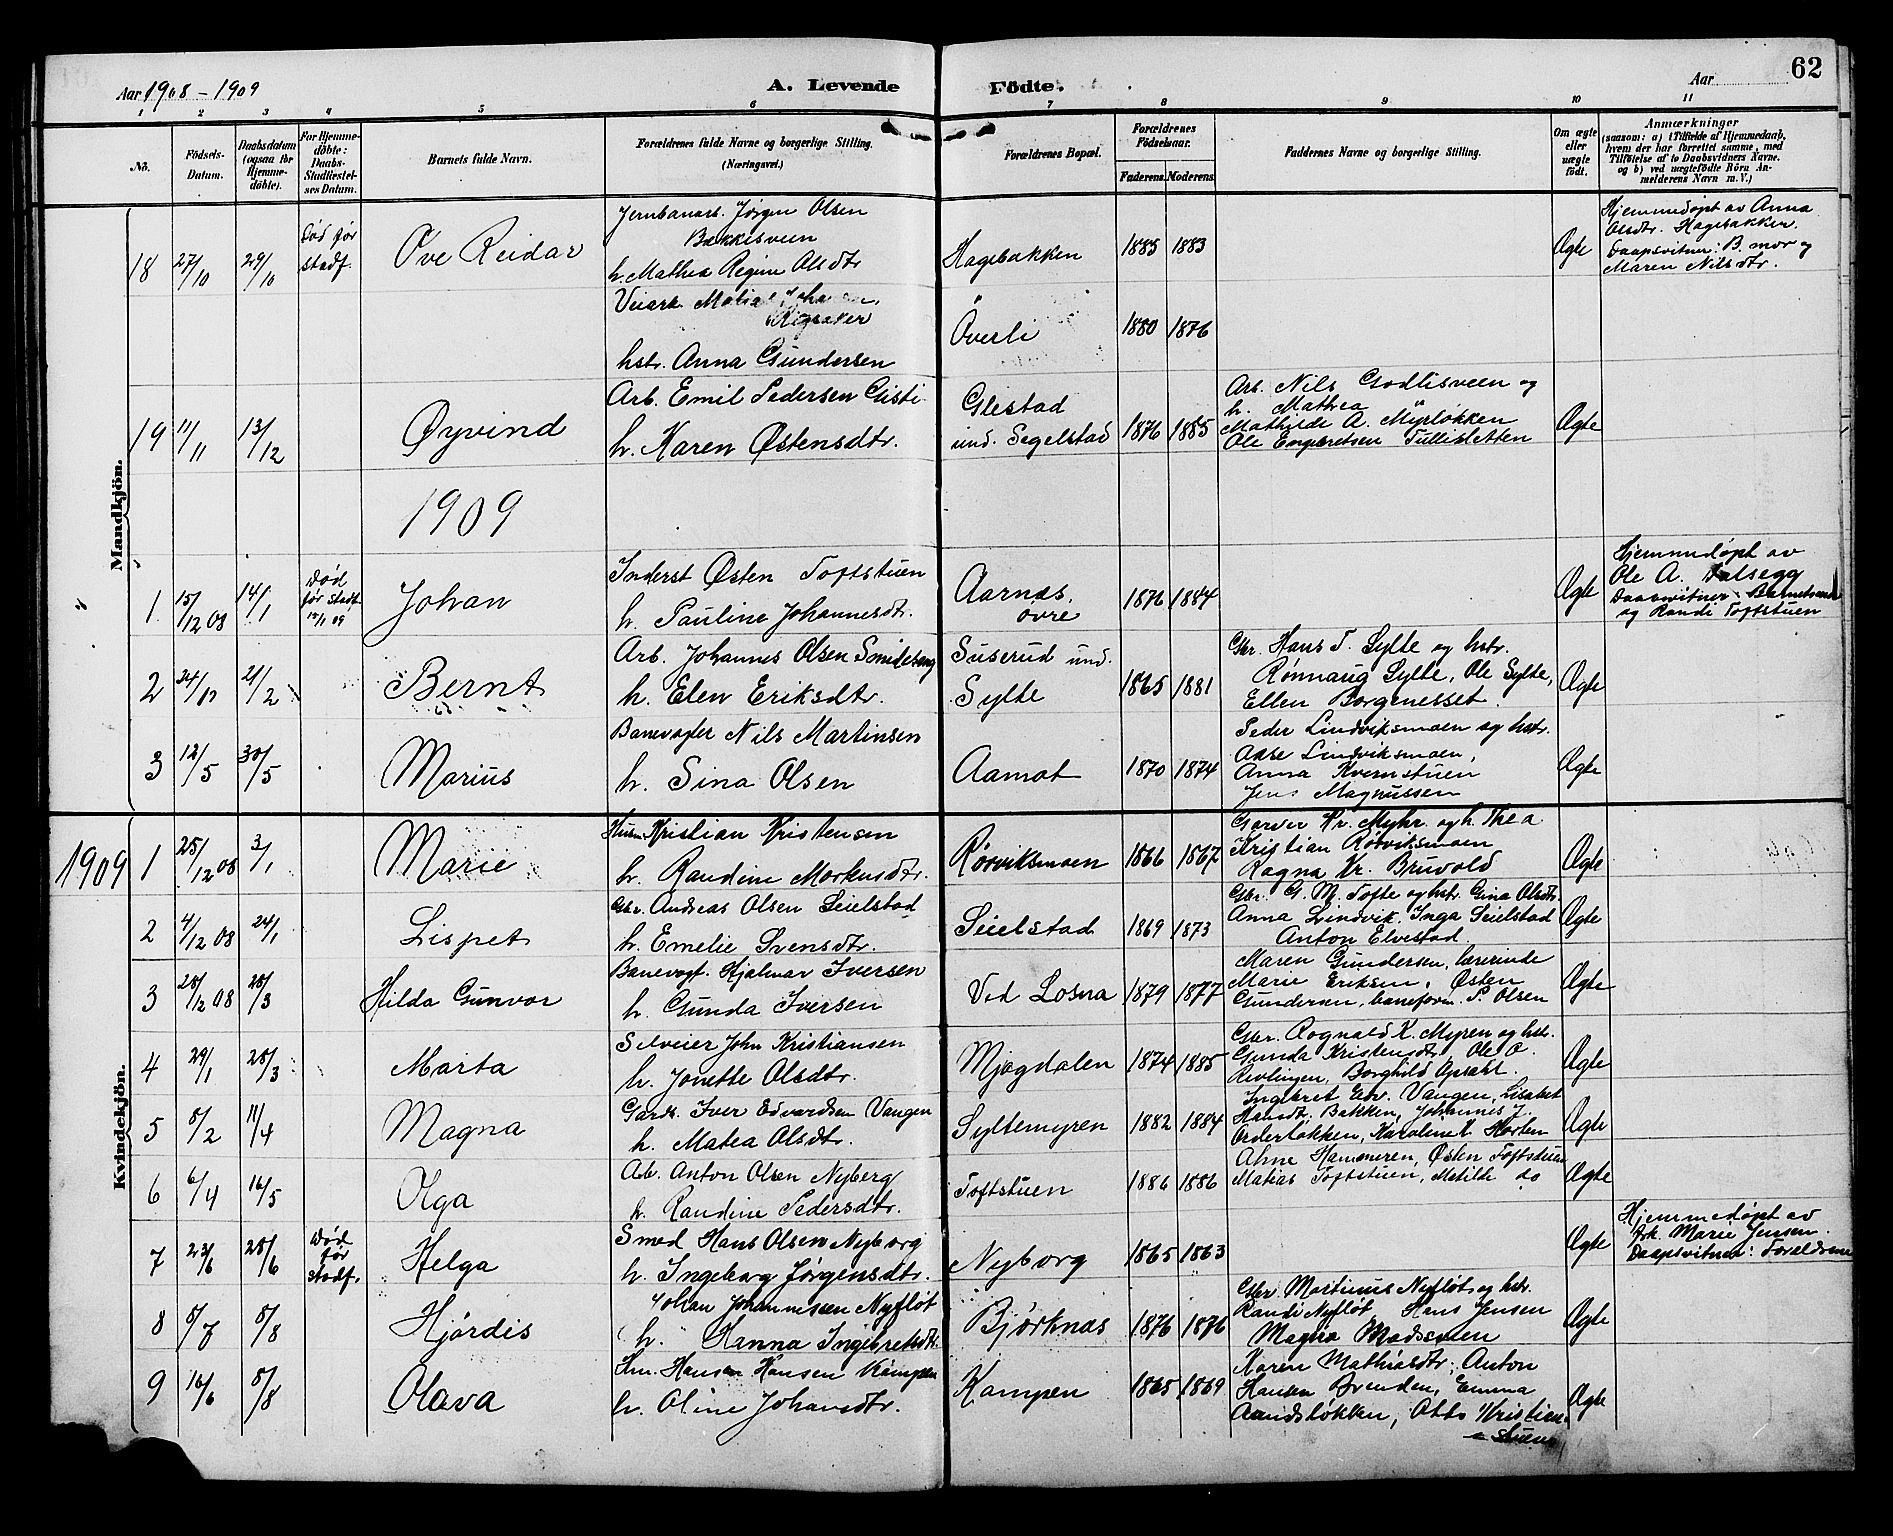 Aar 1908 - 1909
A. Levende
Födte.
Aar
62
1 2 3 4 5 6 7 8 9 10 11
No.
Fødsels-
Datum.
Daabsdatum
(ogsaa for
Hjemme-
döbte).
For Hjemme-
döbte:
Daabs-
Stadfæstel-
ses Datum.
Barnets fulde Navn.
Forældrenes fulde Navne og borgerlige Stilling.
(Næringsvei.)
Forældrenes Bopæl.
Forældrenes
Födselsaar.
Faderens. Moderens.
Faddernes Navne og borgerlige Stilling.
Om ægte
eller
uægte
født.
Anmærkninger
(saasom: a) i Tilfælde af Hjemmedaab,
hvem der har forrettet samme, med
Tilføielse af to Daabsvidners Navne.
og b) ved uægtefödte Börn An-
melderens Navn m. V.)
Mandkjön.
18 27/10 29/10
Død før
stadf.
Ove Reidar
Jernbanarb. Jørgen Olsen
Bakkisveen
h. Mathea Regine Olsdtr
Hagebakken
1885 1883
Ægte
Hjemmedøpt av Anna
Olsdtr. Hagebakken.
Daapsvitner: B. mor og
Maren Nilsdtr.
Veiarb.
hstr. Anna Gundersen
Överli
1880 1876
19 11/11 13/12
Øyvind
Arb. Emil Pedersen Gisti
h. Karen Østensdtr.
Glestad
und. Segelstad
1876 1885
Arb. Nils Godlisveen og
h. Mathea
Mathilde A. Myrløkken
Ole Engbretsen Tullisletten
Ægte
1909
1 15/12 08 14/1
Død
før stadf.
Johan
Inderst Østen Toftstuen
h. Pauline Johannesdtr.
Aarnæs,
övre
1876 1884
Ægte
Hjemmedøpt av
Ole A. Dalsegg
Daapsvitner:
og Randi Toftstuen
2 24/12 21/2
Bernt
Arb. Johannes Olsen Smidesang
h. Elen Eriksdtr.
Suserud und.
Sylte
1865 1881
Gbr. Hans T. Sylte og hstr.
Rønnaug Sylte, Ole Sylte,
Ellen Borgenesset.
Ægte
3 12/5 30/5
Marius
Banevogter Nils Martinsen
h. Sina Olsen
Aamot
1870 1874
Peder Lindviksmoen og hstr.
Aase Lindviksmoen,
Anna Kvernstuen
Jens Magnussen
Ægte
1909
Kvindekjön.
1 28/12 08 3/1
Marie
Husm. Kristian Kristensen
h. Randine Markusdtr.
Rørviksmoen
1866 1867
Garver Kr. Myhr og h. Thea
Kristian Rørviksmoen
Ragna Kr. Bruvold
Ægte
2 4/12 08 24/1
Lispet
Gbr. Andreas Olsen Seielstad
h. Emelie Svensdtr.
Seielstad
1869 1873
Gbr. G. M. Tofte og hstr. Gina Olsdtr.
Anna Lindvik, Inga Seielstad
Anton Elvestad.
Ægte
3 28/12 08 28/3
Hilda Gunvor
Banevogt. Hjalmar Iversen
h. Gunda Iversen
Ved Losna
1879 1877
Maren Gundersen, lærerinde
Marie Eriksen, Østen
Gundersen, baneform. P. Olsen
Ægte
4 29/1 28/3
Marta
Selveier John Kristiansen
h. Jonette Olsdtr.
Mjøgdalen
1874 1885
Gbr. Rognald K. Myren og hstr.
Gunda Kristensdtr, Ole O.
Revlingen, Borghild Opsahl.
Ægte
5 8/2 11/4
Magna
Gardb. Iver Edvardsen Vangen
h. Matea Olsdtr.
Syltemyren
1882 1884
Ingebret Edv. Vangen, Lisabet
Hansdtr. Bakken, Johannes J.
Orderløkken, Karoline Horten
Ægte
6 6/4 16/5
Olga
Arb. Anton Olsen Nyberg
h. Randine Pedersdtr.
Toftstuen
1886 1886
Ahne Hammeren, Østen Toftstuen
Matias Toftstuen, Matilde do
Ægte
7 23/6 28/6
Død
før
stadf.
Helga
Smed Hans Olsen Nyborg
h. Ingeborg Jørgensdtr.
Nyborg
1865 1863
Ægte
Hjemmedøpt av
frk. Marie Jensen
Daapsvitner: Foreldrene
8 8/7 8/8
Hjørdis
Johan Johannessen Nyfløt
h. Hanna Ingebretsdtr.
Bjørknæs
1876 1876
Gbr. Martinus Nyfløt og hstr.
Randi Nyfløt Hans Jensen
Magna Madsveen
Ægte
9 16/6 8/8
Olava
Hm. Hansen Kampen
h. Oline Johansdtr.
Kampen
1865 1869
Karen Mathiasdtr, Anton
Hansen Brenden, Emma
Aamdsløkken, Otto Kristian-
stuen
Ægte